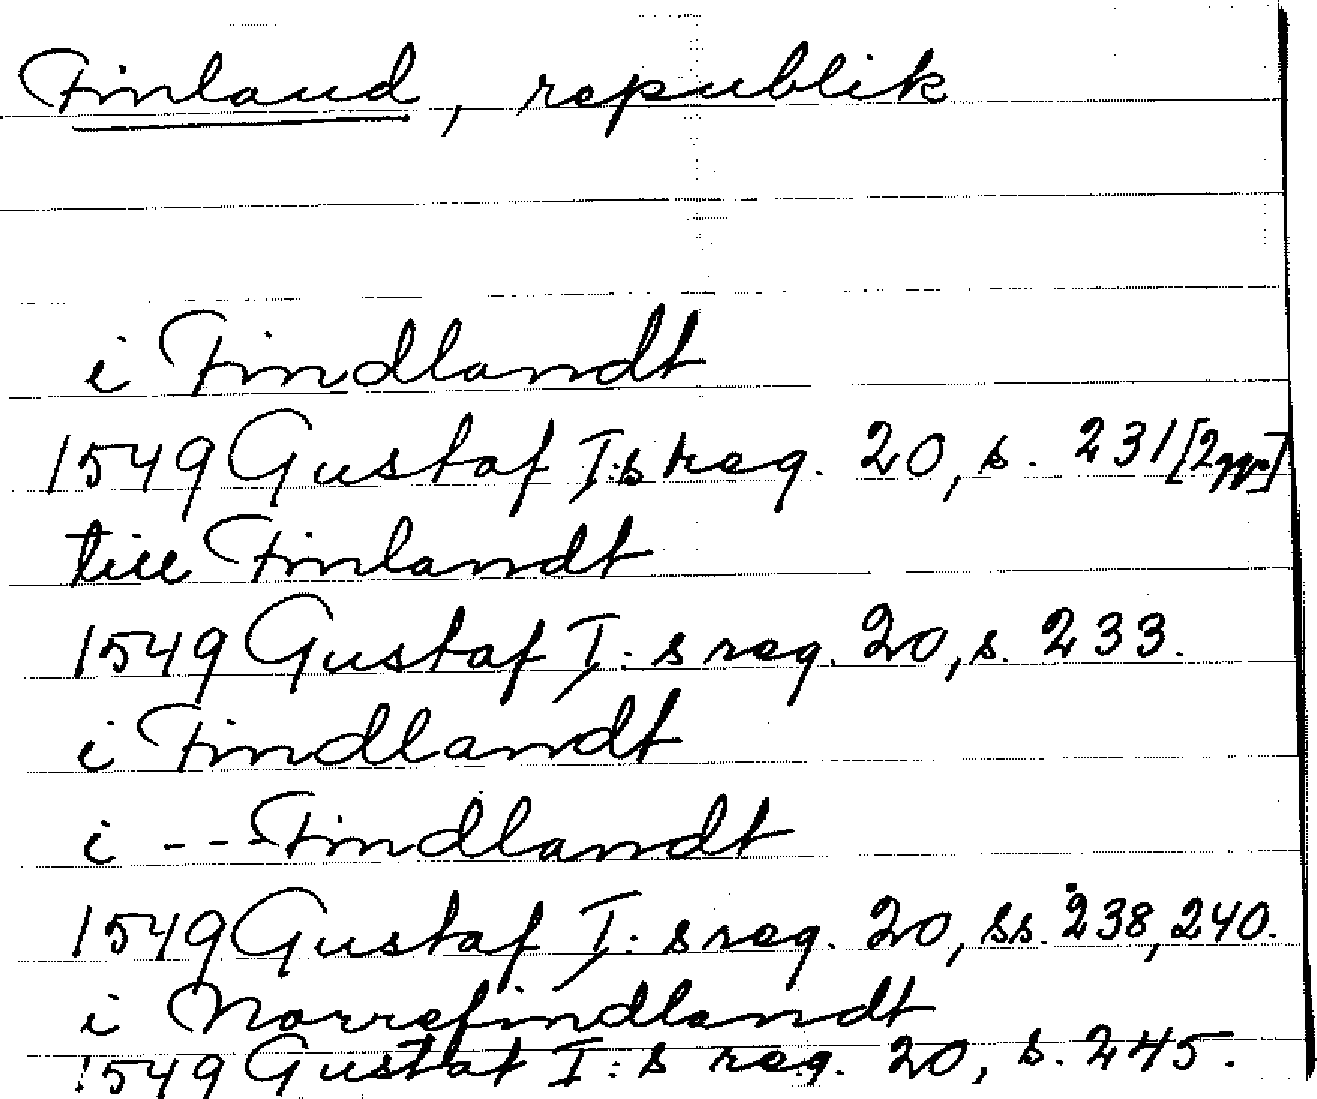 Finland, republik
i Findlandt
1549 Gustaf I:s reg. 20, s. 231 [2ggr]
till Finlandt
1549 Gustaf I:s reg. 20, s. 233.
i Findlandt
i --- Findlandt
1549 Gustaf I:s reg. 20, ss. 238, 240.
i Norrefindlandt
1549 Gustaf I:s reg. 20, s. 245.